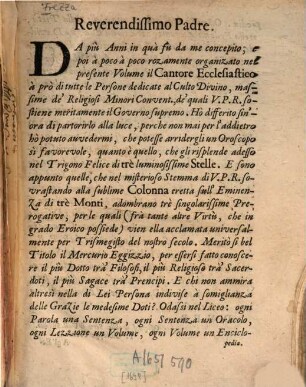 Reverendissimo Padre.
DA più Anni in quà fu da me concepito; e
poi à poco à poco rozamente organizato nel
presente Volume il Cantore Ecclesiastico
à prò di tutte le Persone dedicate al Culto Divino, mas-
sime de' Religiosi Minori Convent. de' quali V.P.R. so-
stiene meritamente il Governo supremo. Hò differito sin'
ora di partorirlo alla luce, perche non mai per l'addietro
hò potuto avvedermi, che potesse arridergli un Oroscopo
sì favorevole, quanto è quello, che gli risplende adesso
nel Trigono Felice di trè luminosissime Stelle. E sono
appunto quelle, che nel misterioso Stemma di V.P.R. so-
vrastando alla sublime Colonna eretta sull' Eminen-
za di trè Monti, adombrano trè singolarissime Pre-
rogative, per le quali (frà tante altre Virtù, che in
grado Eroico possiede) vien ella acclamata universal-
mente per Trismegisto del nostro secolo. Meritò sì bel
Titolo il Mercurio Eggizzio, per essersi fatto conosce-
re il più Dotto trà Filosofi, il più Religioso trà Sacer-
doti, il più Sagace trà Prencipi. E chi non ammira
altresì nella di Lei Persona indivise à somiglianza
delle Grazie le medesime Doti? Odasi nel Liceo: ogni
Parola una Sentenza, ogni Sentenza un Oracolo,
ogni Lezzione un Volume, ogni Volume un Enciclo-
pedia.